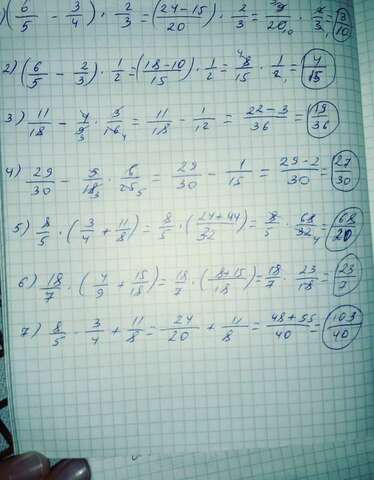 ) (6/5 − 3/4) · 2/3 = (24−15)/20 · 2/3 = 9/20 · 2/3 = 3/10
2) (6/5 − 2/3) · 1/2 = (18−10)/15 · 1/2 = 8/15 · 1/2 = 4/15
3) 11/18 − 4/9 · 3/16 = 11/18 − 1/12 = 22−3/36 = 19/36
4) 29/30 − 5/18 · 6/25 = 29/30 − 1/15 = 29−2/30 = 27/30
5) 8/5 · (3/4 + 11/8) = 8/5 · (24+44/32) = 8/5 · 68/32 = 68/20
6) 18/7 · (4/9 + 15/18) = 18/7 · (8+15/18) = 18/7 · 23/18 = 23/7
7) 8/5 · 3/4 + 11/8 = 24/20 + 11/8 = 48+55/40 = 103/40